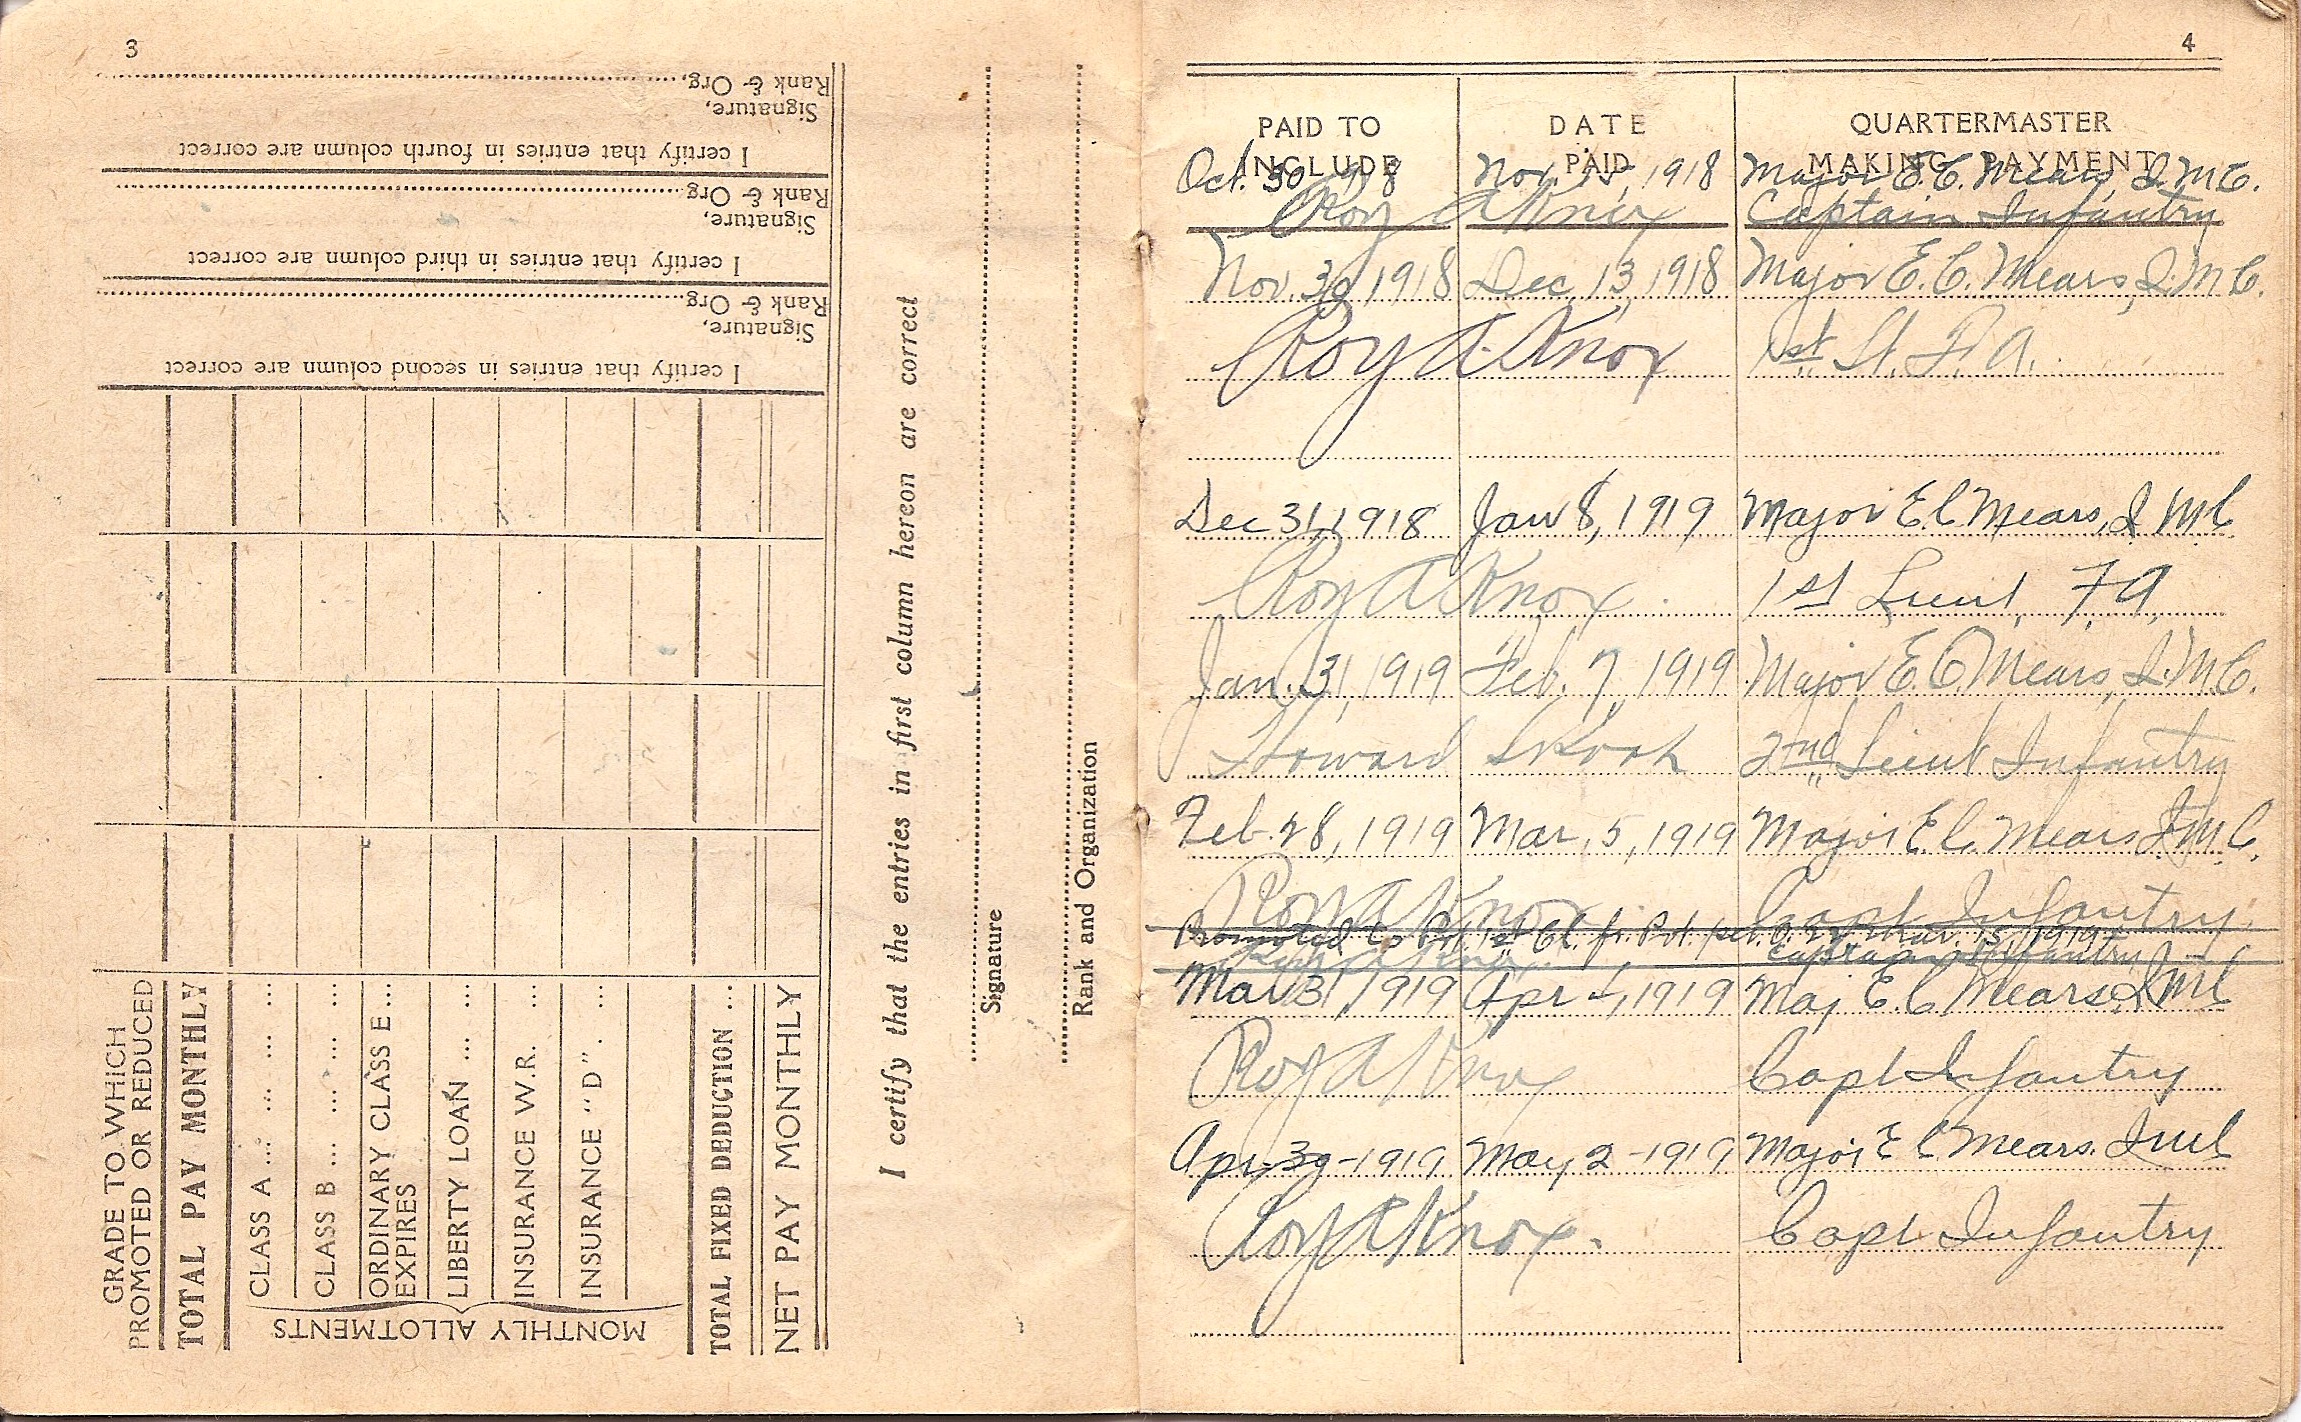 3
GRADE TO WHICH
PROMOTED OR REDUCED
TOTAL PAY MONTHLY
MONTHLY ALLOTMENTS
CLASS A ... ... ... ...
CLASS B ... ... ... ...
ORDINARY CLASS E ...
EXPIRES
LIBERTY LOAN ... ...
INSURANCE W.R. ...
INSURANCE "D". ...
TOTAL FIXED DEDUCTION ...
NET PAY MONTHLY
I certify that entries in second column are correct
Signature,
Rank & Org,
I certify that entries in third column are correct
Signature,
Rank & Org,
I certify that entries in fourth column are correct
Signature,
Rank & Org,
I certify that the entries in first column hereon are correct
Signature
Rank and Organization
4
PAID TO INCLUDE
DATE PAID
QUARTERMASTER MAKING PAYMENT
Oct. 30 1918 Nov. 15, 1918 Major E. C. Mears, Q.M.C.
Roy A Knox Captain Infantry
Nov. 30, 1918 Dec. 13, 1918 Major E. C. Mears, Q.M.C.
Roy A. Knox 1st Lt. F.A.
Dec 31, 1918 Jan 8, 1919 Major E. C. Mears, Q M C
Roy A Knox 1st Lieut. F.A.
Jan. 31, 1919 Feb. 7, 1919 Major E. C. Mears, Q.M.C.
Howard 2nd Lieut Infantry
Feb. 28, 1919 Mar. 5, 1919 Major E. C. Mears Q.M.C.
Roy A Knox Capt Infantry
Promoted to Pvt. 1st Cl. fr. Pvt. Mar. 15, 1919
Captain Infantry
Mar 31, 1919 Apr , 1919 Maj E. C Mears Q M C
Roy A Knox Capt Infantry
Apr-30-1919 May 2-1919 Major E C Mears. Q M C
Roy A Knox. Capt Infantry